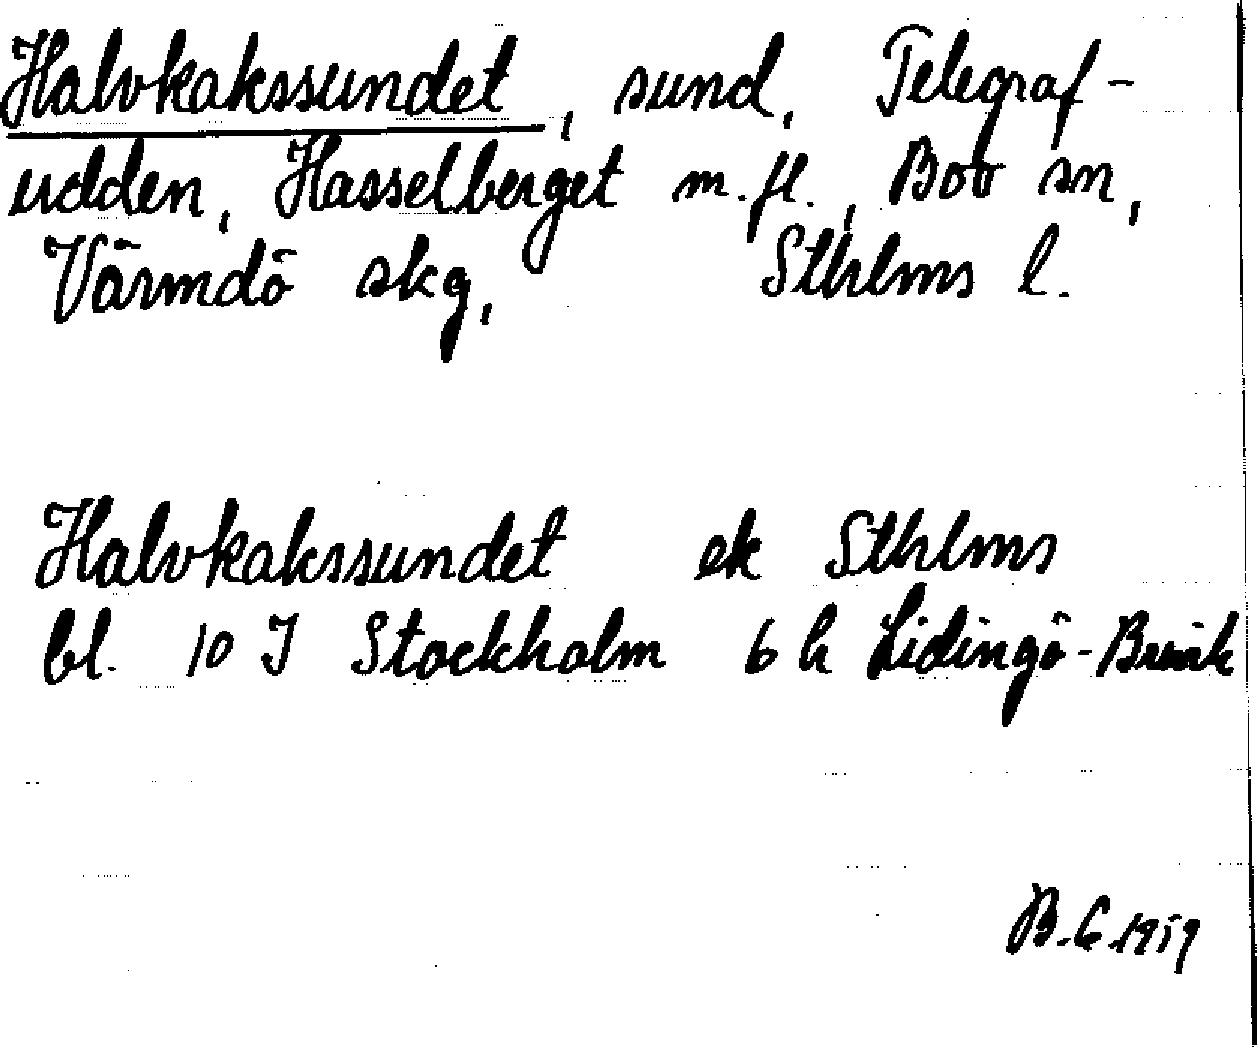 Halvkakssundet, sund, Telegraf-
udden, Hasselberget m.fl., Boo sn,
Värmdö skg, Sthlms l.
Halvkakssundet ek Sthlms
bl. 10 I Stockholm 6 h Lidingö-Brevik
B.G.1959